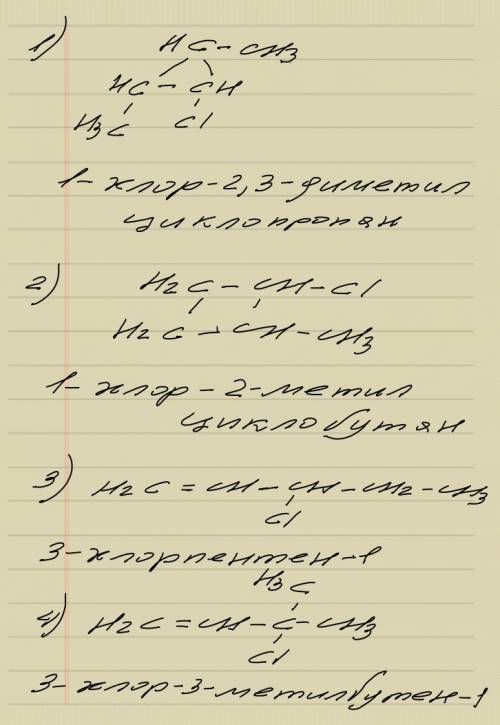 1)
HC - CH3
HC - CH
H3C Cl
1-хлор-2,3-диметил
циклопропан
2)
H2C - CH - Cl
H2C - CH - CH3
1-хлор-2-метил
циклобутан
3) H2C = CH - CH - CH2 - CH3
Cl
3-хлорпентен-1
H3C
4) H2C = CH - C - CH3
Cl
3-хлор-3-метилбутен-1